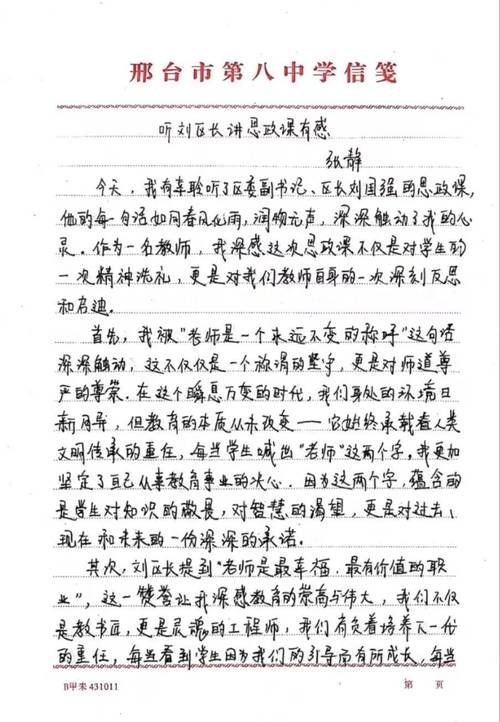 邢台市第八中学信笺
听刘区长讲思政课有感
张静
今天，我有幸聆听了区委副书记、区长刘国强的思政课，
他的每一句话如同春风化雨，润物无声，深深触动了我的心
灵。作为一名教师，我深感这次思政课不仅是对学生的
一次精神洗礼，更是对我们教师自身的一次深刻反思
和启迪.
首先，我被"老师是一个永远不变的称呼"这句话
深深触动，这不仅仅是一个称谓的坚守，更是对师道尊
严的尊崇.在这个瞬息万变的时代，我们身处的环境日
新月异，但教育的本质从未改变——它始终承载着人类
文明传承的重任，每当学生喊出"老师"这两个字，我更加
坚定了自己从事教育事业的决心.因为这两个字，蕴含的
是学生对知识的敬畏，对智慧的渴望，更是对过去、
现在和未来的一份深深的承诺.
其次，刘区长提到"老师是最幸福、最有价值的职
业"，这一赞誉让我深感教育的崇高与伟大，我们不仅
是教书匠，更是灵魂的工程师，我们有负着培养下一代
的重任，每当看到学生因为我们的引导而有所成长，每当
B甲未431011
第 页